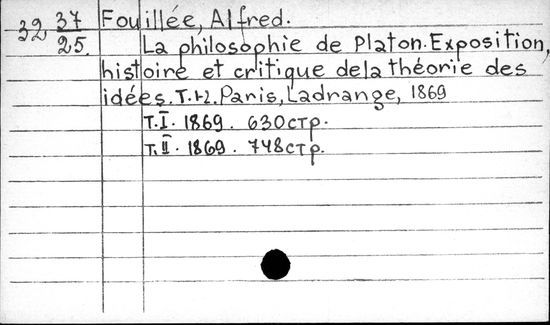 32 37/25.
Fouillée, Alfred.
La philosophie de Platon. Exposition,
histoire et critique de la théorie des
idées. T. 1-2. Paris, Ladrange, 1869
T. I. 1869. 630 стр.
T. II. 1869. 748 стр.